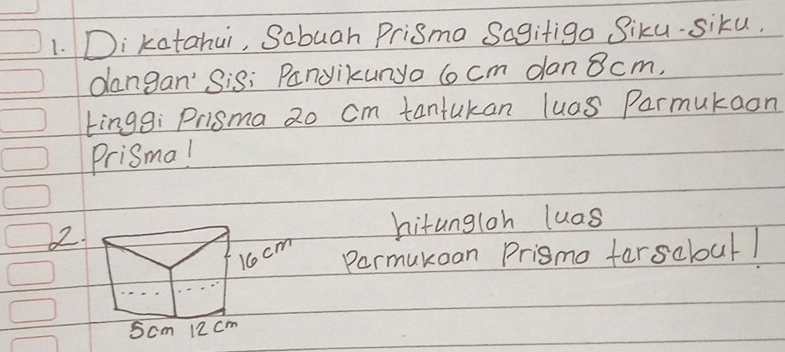 1. Di katahui, Sabuah Prisma Sagitiga Siku-Siku,
dangan Sisi Panyikunya 6 cm dan 8cm.
tinggi Prisma 20 cm tantukan luas Parmukaan
Prisma!
2. 16 cm hitunglah luas
Parmukaan Prisma tarsabut!
5cm 12 cm